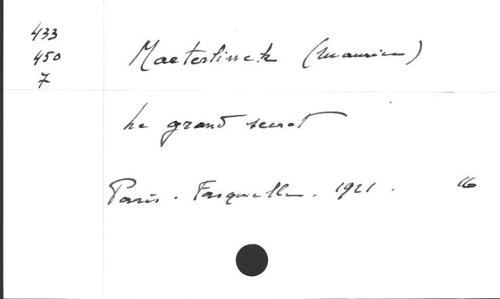 433
450
7
Maeterlinck (Maurice)
Le grand secret
Paris. Fasquelle. 1921. 16